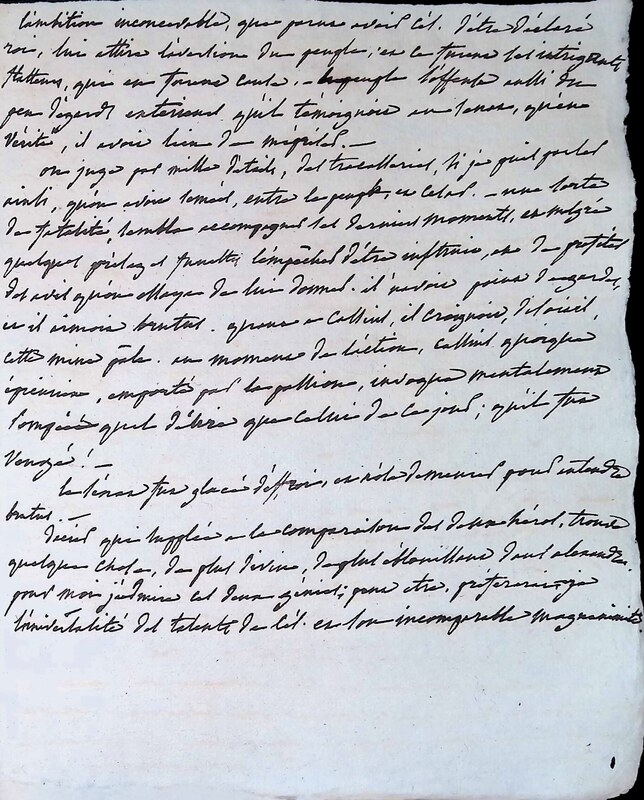 l'ambition inconcevable, que parut avoir Cés. d'être déclaré
roi, lui attira l'aversion du peuple; et ce furent les intrigants
flatteurs, qui en furent cause. - le peuple s'offensa aussi du
peu d'égards extérieurs, qu'il témoignoit au sénat, qu'en
vérité, il avoit lieu de mépriser. -
on juge par mille détails, des tracasseries, si je puis parler
ainsi, qu'on avoit semées, entre le peuple, et César. - une sorte
de fatalité, sembla accompagner ses derniers moments, et malgré
quelques présages funestes, l'empêcher d'être instruit, et de profiter
des avis qu'on essaya de lui donner. il n'avoit point de gardes,
et il aimoit brutus. quant à Cassius, il craignoit, disoit-il,
cette mine pâle. au moment de l'action, Cassius quoique
épicurien, emporté par la passion, invoqua mentalement
Pompée quel délire que celui de ce jour; qu'il fut
vengé! -
le sénat fut glacé d'effroi, et n'osa demeurer pour entendre
brutus. -
Dacier qui supplée à la comparaison des deux héros, trouve
quelque chose, de plus divin, de plus éblouissant dans alexandre.
pour moi j'admire ces deux génies; peut être, préférerois-je
l'universalité des talents de Cés. et son incomparable magnanimité